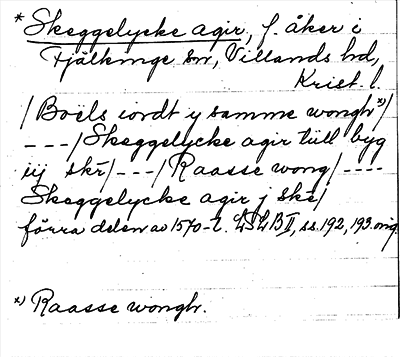 * Skeggelycke agir, f. åker i
Fjälkinge sn, Villands hd,
Krist. l.
/Boëls iordt y samme wongh*)/
---/Skeggelycke agir tiill byg
iij skr/---/Raasse wong/----
Skeggelycke agir j ske/
förra delen av 1570-t. LSLB II, ss. 192, 193. orig.
*) Raasse wongh.